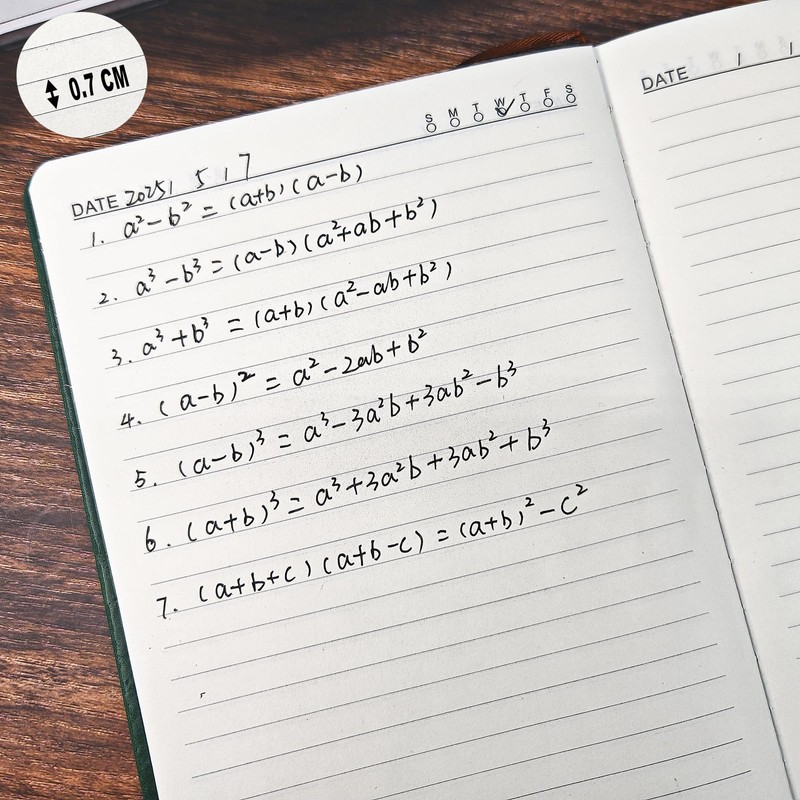 0.7 CM
S M T W T F S
DATE 2025/ 5 / 7
1. a²-b² = (a+b)(a-b)
2. a³-b³ = (a-b)(a²+ab+b²)
3. a³+b³ = (a+b)(a²-ab+b²)
4. (a-b)² = a²-2ab+b²
5. (a-b)³ = a³-3a²b+3ab²-b³
6. (a+b)³ = a³+3a²b+3ab²+b³
7. (a+b+c)(a+b-c) = (a+b)²-c²
DATE / /